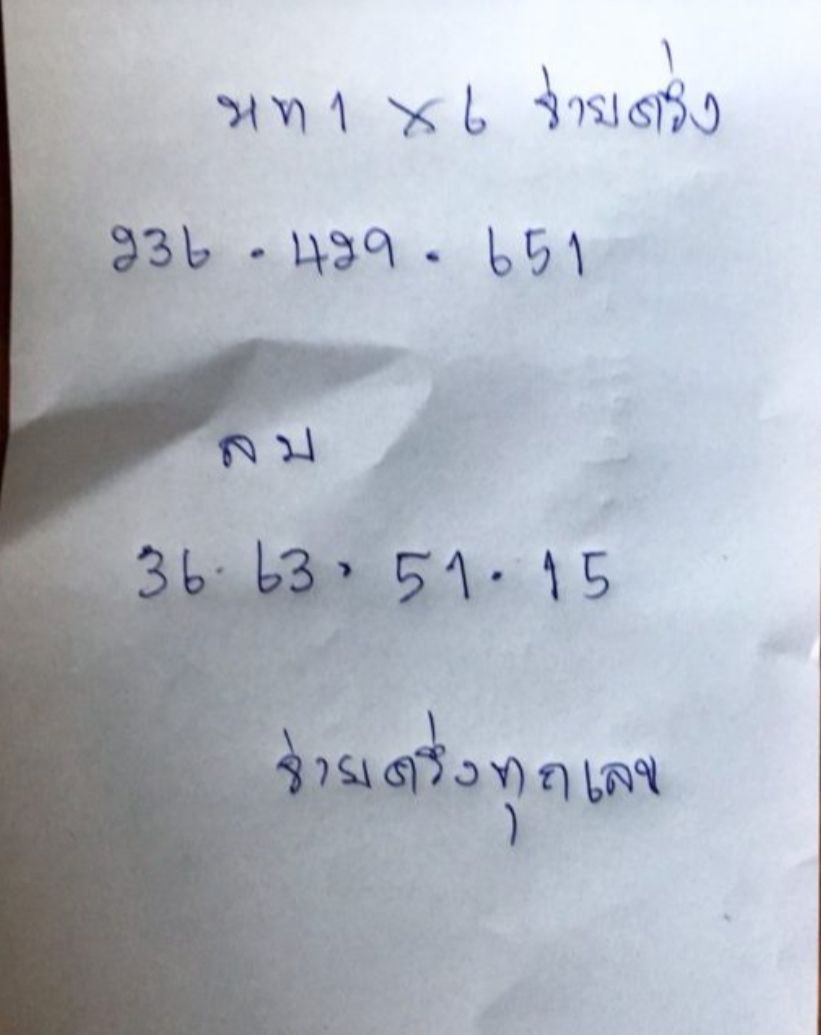 หท 1 × 6 จ่ายครึ่ง
236 . 429 . 651
ลบ
36 . 63 . 51 . 15
จ่ายครึ่งทุกเลข